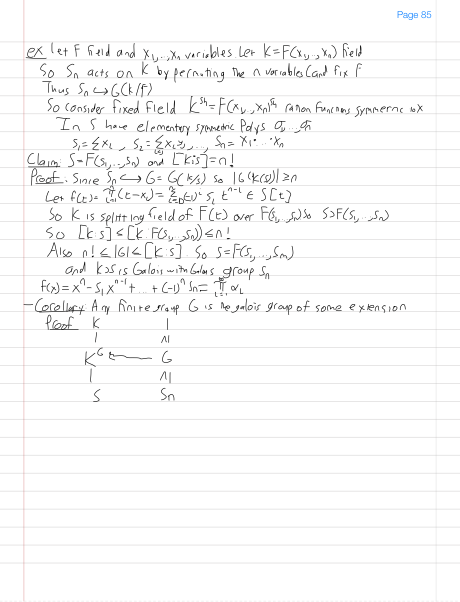 Page 85
ex let F field and x₁,...,xₙ variables Let K=F(x₁,...,xₙ) field
So Sₙ acts on K by permuting the n variables (and fix F
Thus Sₙ ↪ G(K/F)
So consider fixed field K^Sₙ = F(x₁,...,xₙ)^Sₙ ration functions symmetric
In S have elementary symmetric Polys σ₁...σₙ
S₁=Σxᵢ, S₂=Σxᵢxⱼ, ..., Sₙ=x₁...xₙ
Claim: S=F(S₁,...,Sₙ) and [K:S]=n!
Proof. Since Sₙ ↪ G=G(K/S) so |G(K/S)| ≥ n
Let f(t)=∏(t-xᵢ)=Σ(-1)ⁱ Sᵢ tⁿ⁻ⁱ ∈ S[t]
So K is splitting field of F(t) over F(S₁,...,Sₙ) so S⊃F(S₁,...,Sₙ)
So [K:S] ≤ [K:F(S₁,...,Sₙ)] ≤ n!
Also n! ≤ |G| ≤ [K:S]. So S=F(S₁,...,Sₙ)
and K⊃S is Galois with Galois group Sₙ
f(x)=xⁿ-S₁xⁿ⁻¹+...+(-1)ⁿSₙ=∏αᵢ
- Corollary: Any finite group G is the galois group of some extension
Proof K |
| ∧|
K^G ← G
| ∧|
S Sₙ